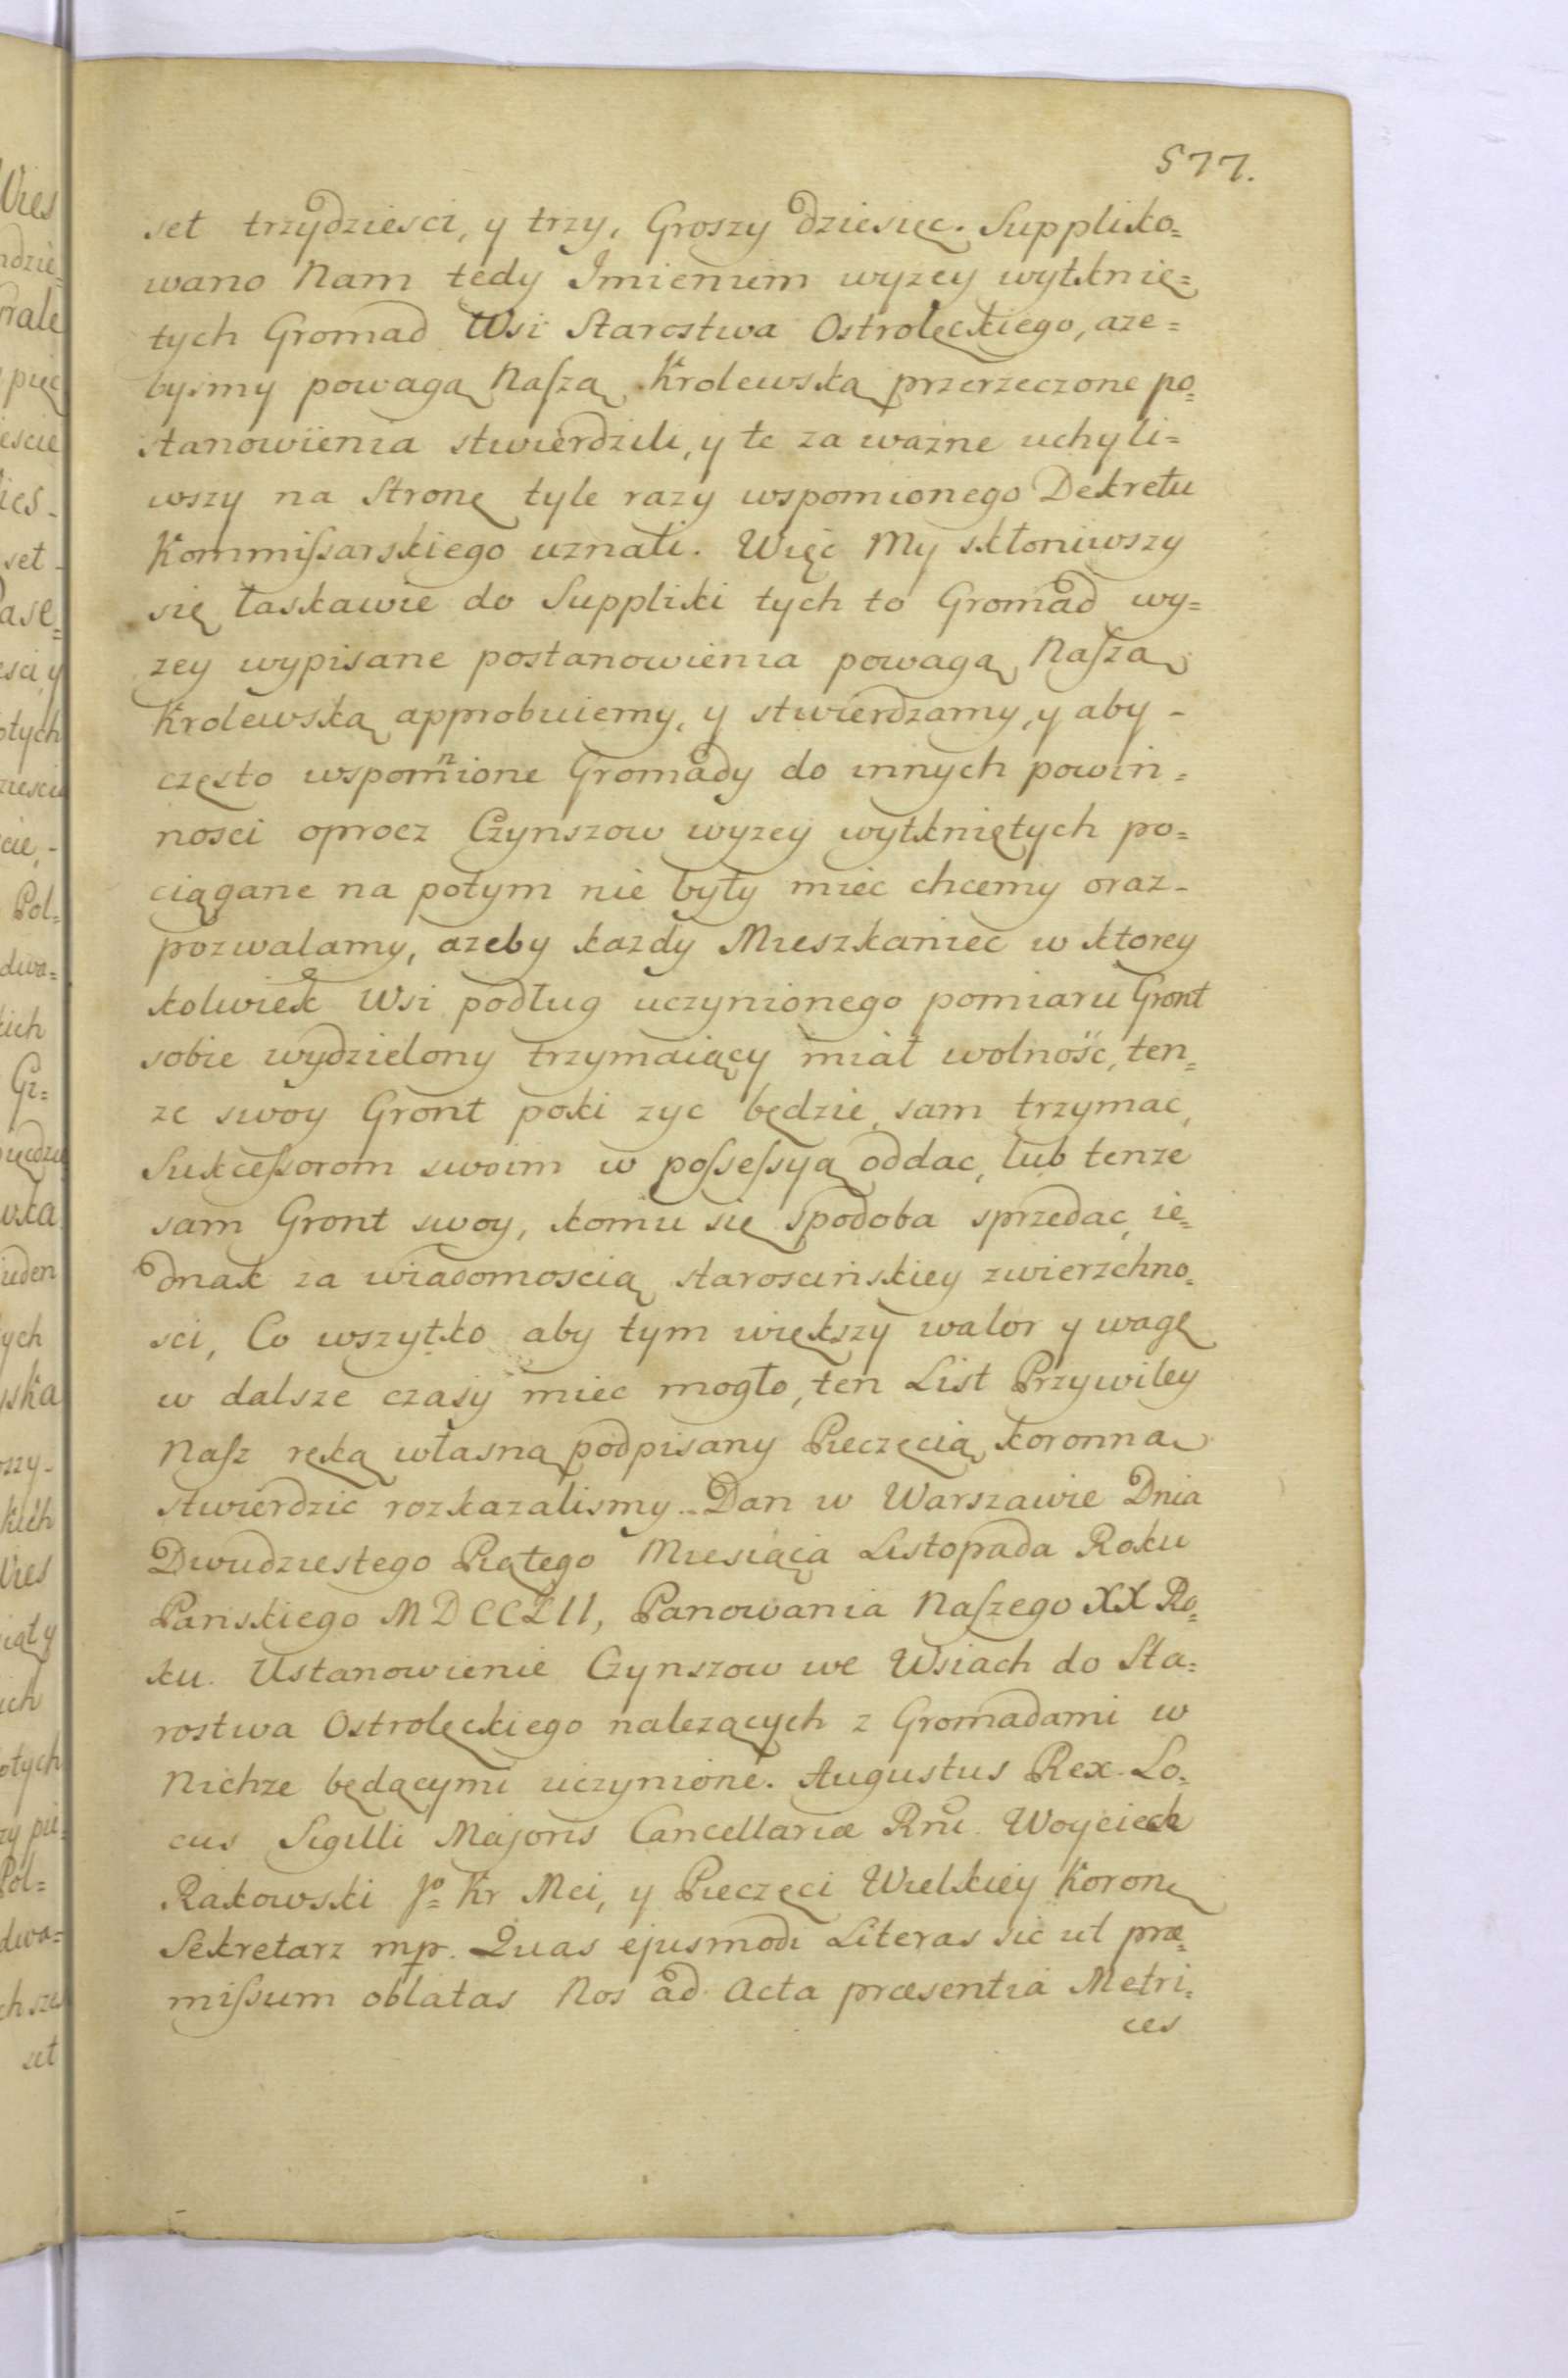 577.
set trzydziesci, y trzy, Groszy dziesięc. Suppliko=
wano Nam tedy Imieniem wyzey wytknię=
tych Gromad Wsi Starostwa Ostrolęckiego, aze=
bysmy powagą Naszą Krolewską przerzeczone po=
stanowienia stwierdzili, y te za wazne uchyli=
wszy na Stronę tyle razy wspomionego Dekretu
Kommissarskiego uznali. Więc My skłoniwszy
się łaskawie do Suppliki tych to Gromad wy=
zey wypisane postanowienia powagą Naszą
Krolewską approbuiemy, y stwierdzamy, y aby -
często wspomnione Gromady do innych powin=
nosci oprocz Czynszow wyzey wytkniętych po=
ciągane na potym nie były miec chcemy oraz -
pozwalamy, azeby kazdy Mieszkaniec w ktorey
kolwiek Wsi podług uczynionego pomiaru Gront
sobie wydzielony trzymaiący miał wolnośc, ten=
ze swoy Gront poki zyc będzie, sam trzymac,
Sukcessorom swoim w possessyą oddac, lub tenze
sam Gront swoy, komu się spodoba sprzedac, ie=
dnak za wiadomoscią staroscińskiey zwierzchno=
sci, Co wszytko aby tym większy walor y wagę
w dalsze czasy miec mogło, ten List Przywiley
Nasz ręką własną podpisany Pieczęcią koronną
stwierdzic rozkazalismy. Dan w Warszawie Dnia
Dwudziestego Piątego Miesiąca Listopada Roku
Pańskiego MDCCLII, Panowania Naszego XX Ro=
ku. Ustanowienie Czynszow we Wsiach do Sta=
rostwa Ostrolęckiego nalezących z Gromadami w
Nichze będącymi uczynione. Augustus Rex. Lo=
cus Sigilli Majoris Cancellariæ Rñi. Woyciech
Rakowski Jº= Kr Mci, y Pieczęci Wielkiey Koronę
Sekretarz mp. Quas ejusmodi Literas sic ut præ=
missum oblatas Nos ad Acta præsentia Metri=
ces